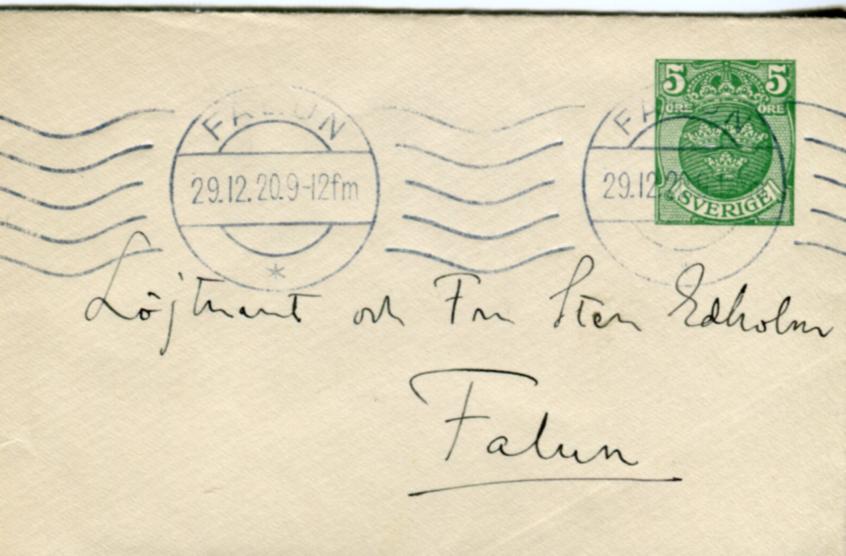 5 5
ÖRE ÖRE
SVERIGE
FALUN
29.12.20.9-12fm
FALUN
29.12.20
Löjtnant och Fru Sten Edholm
Falun